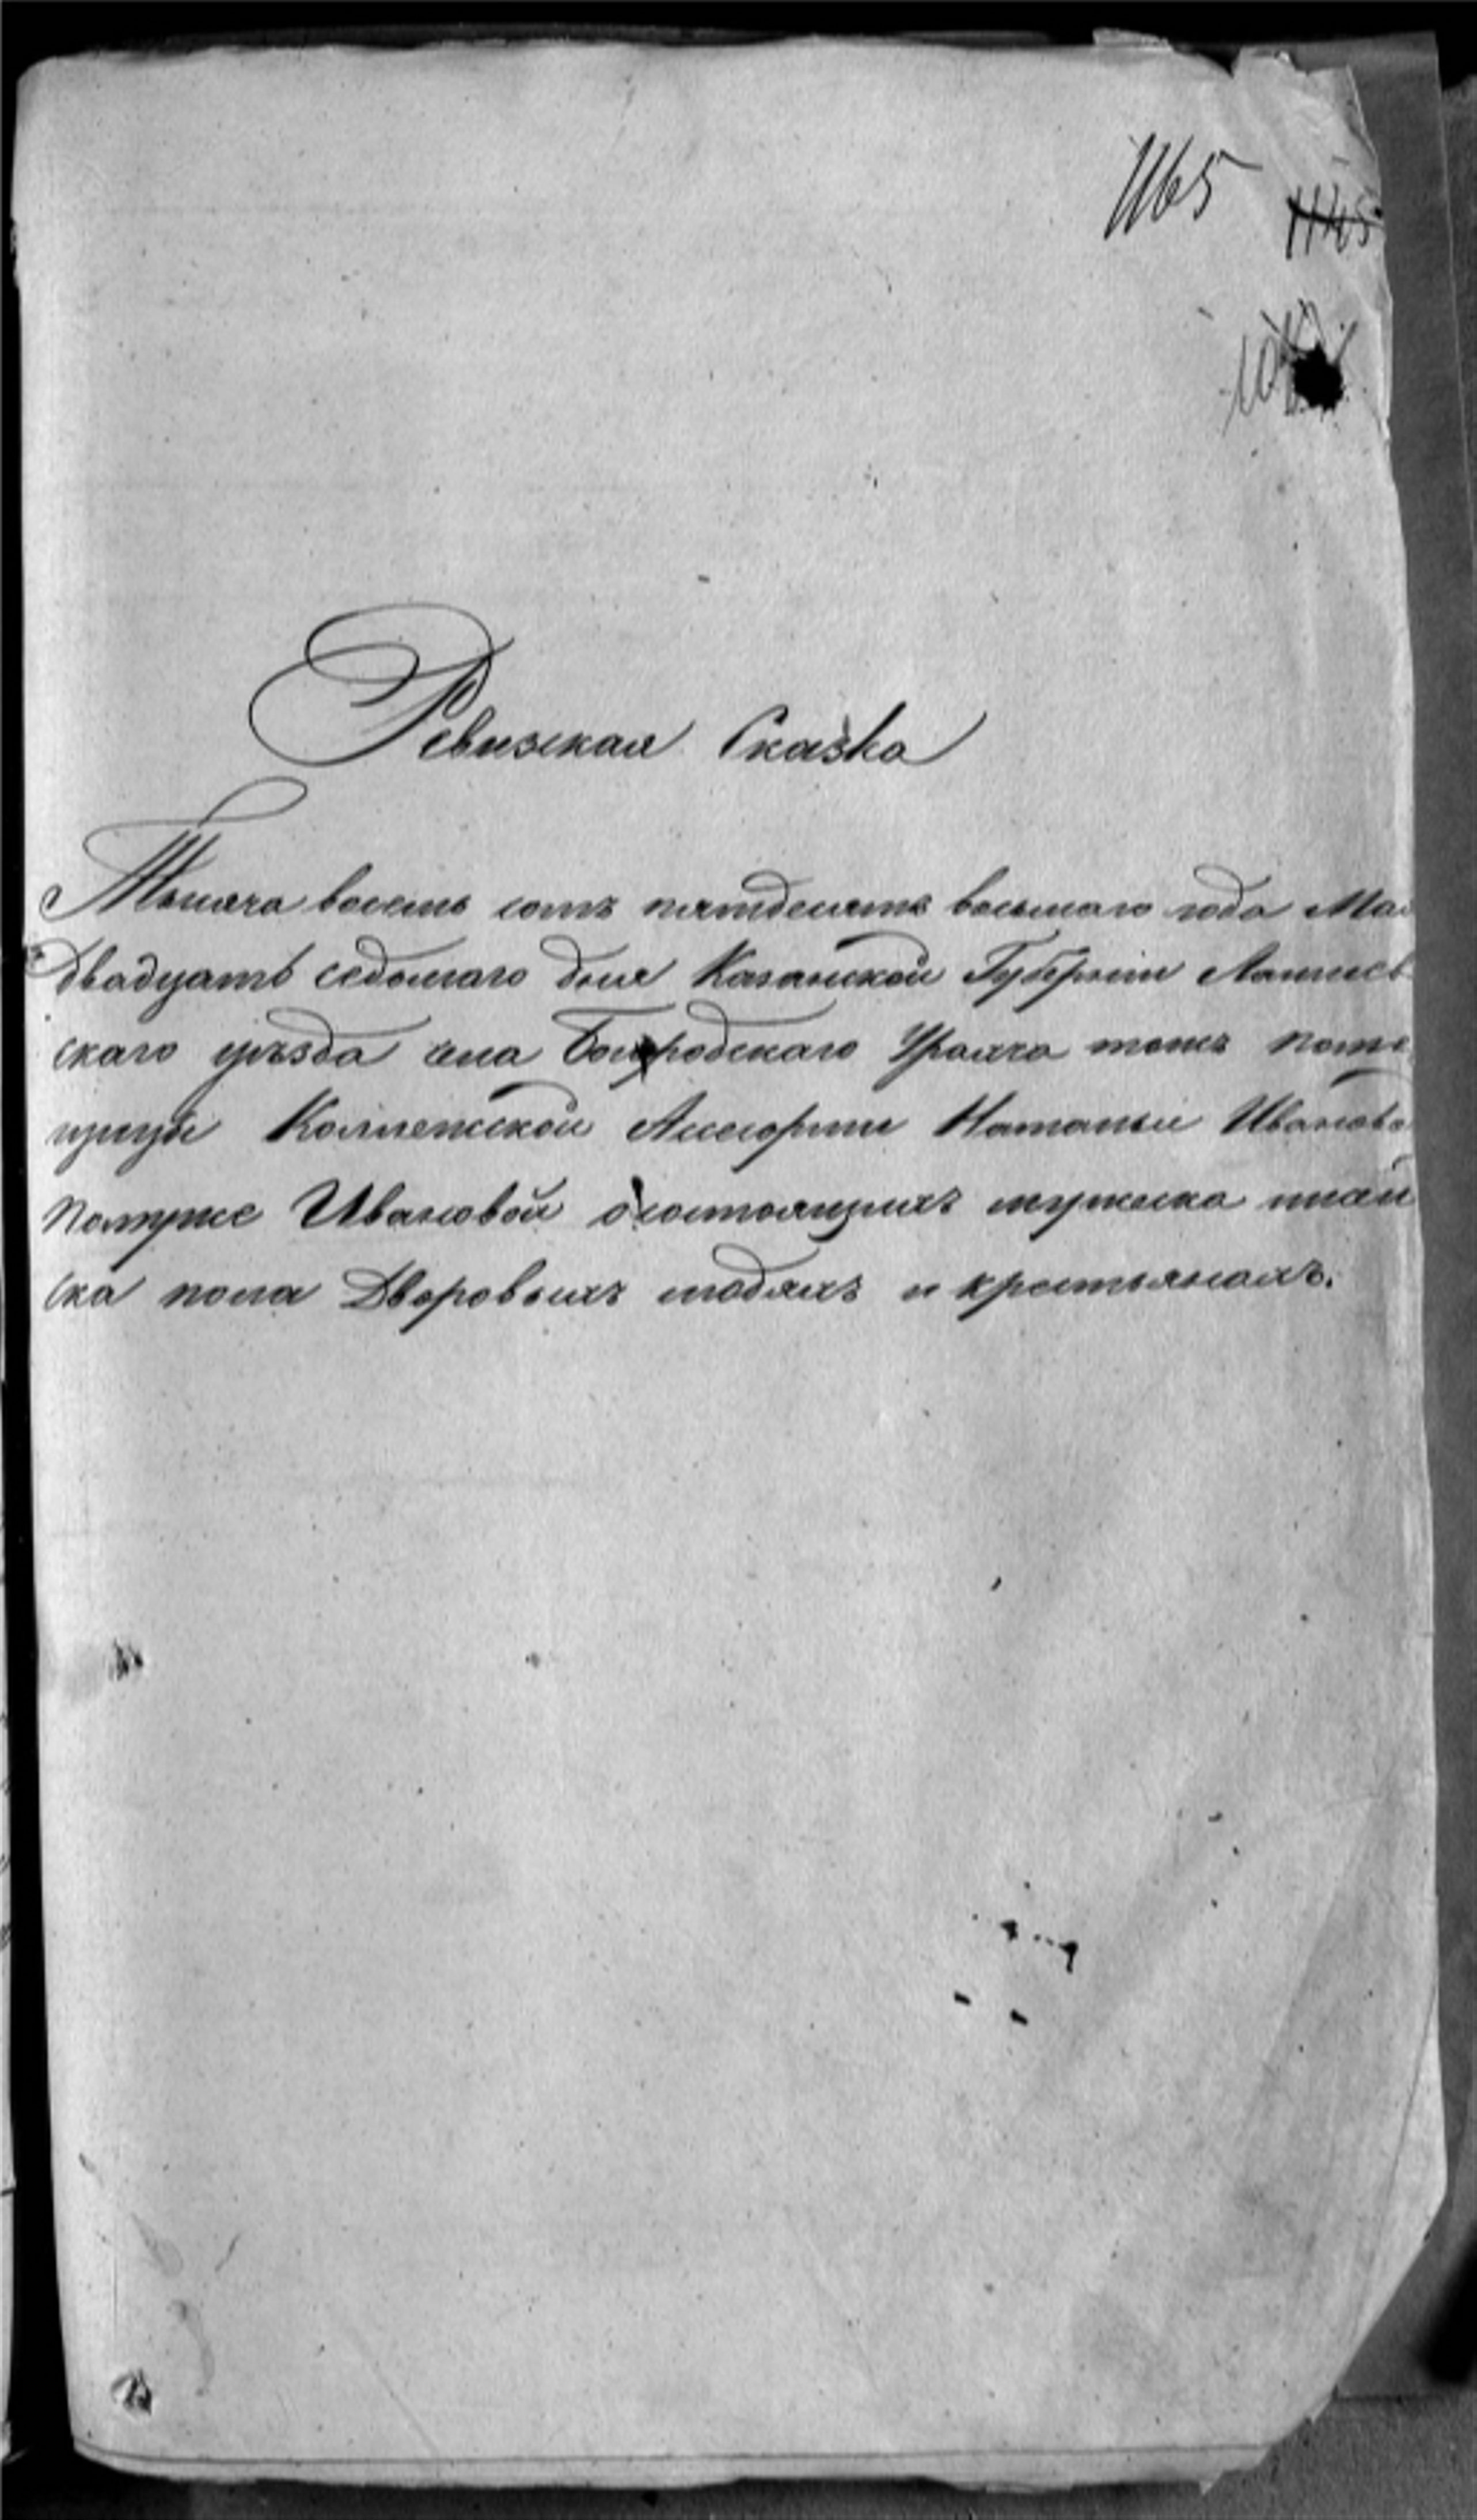 1165
1145
Ревизская Сказка
Тысяча восемь сотъ пятдесятъ восьмаго года Мая
двадцать седьмаго дня Казанской Губерніи Лаишев
скаго уѣзда села Богородскаго Урахча тожъ поме
щицы Коллежской Ассесорши Натальи Ивановой
по мужѣ Ивановой о состоящихъ мужеска и жен
ска пола Дворовыхъ людяхъ и крестьянахъ.